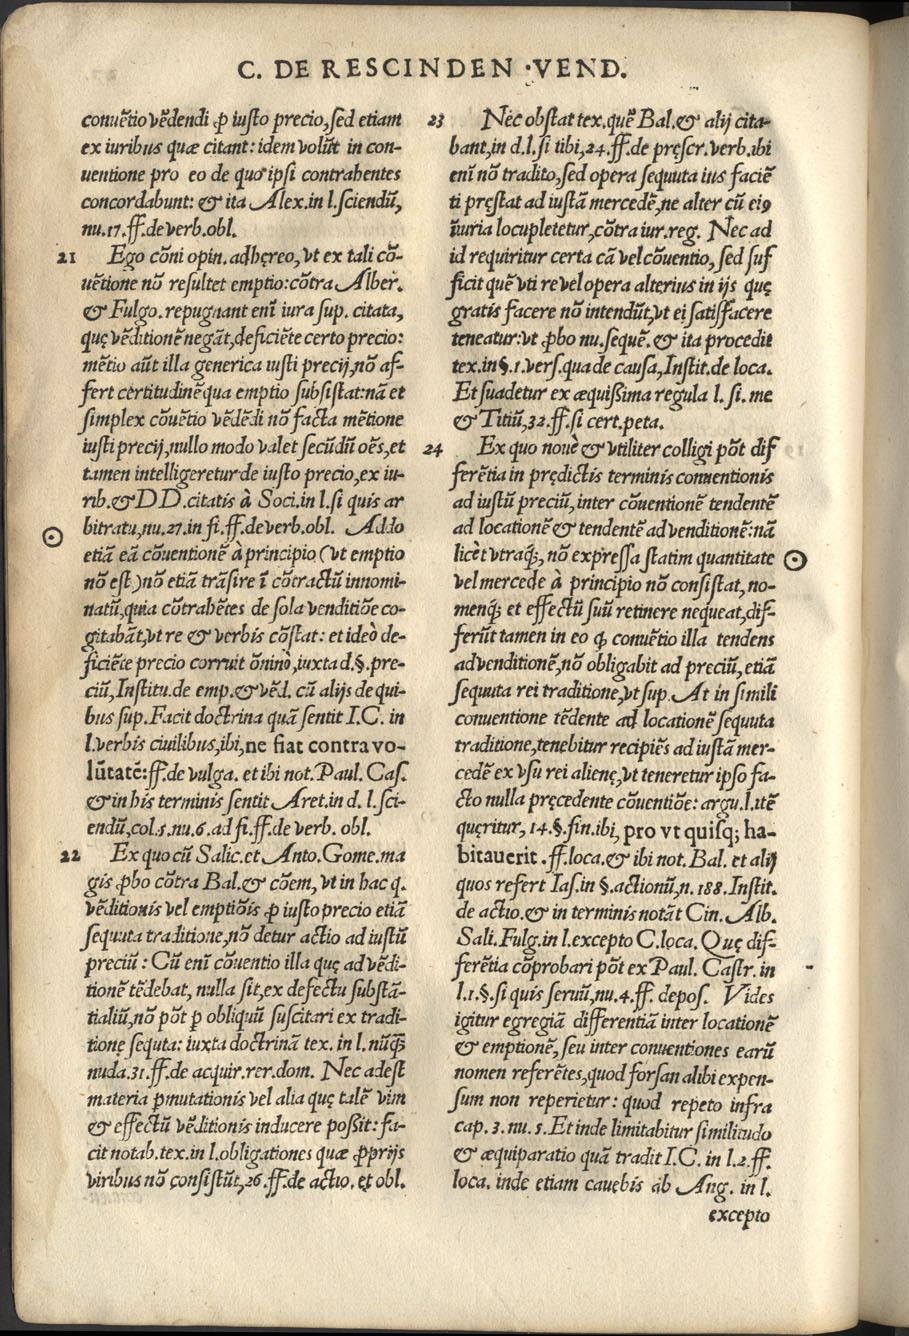 C. DE RESCINDEN ·VEND.
conuẽtio vẽdendi ꝓ iusto precio, sed etiam
ex iuribus quæ citant: idem volũt in con-
uentione pro eo de quo ipsi contrahentes
concordabunt: & ita Alex. in l. sciendũ,
nu. 17. ff. de verb. obl.
21 Ego cõni opin. adhęreo, vt ex tali cõ-
uẽtione nõ resultet emptio: cõtra Alber.
& Fulgo. repugnant enĩ iura sup. citata,
quę vẽditionẽ negãt, deficiẽte certo precio:
mẽtio aũt illa generica iusti precij, nõ af-
fert certitudinẽ qua emptio subsistat: nã et
simplex cõuẽtio vẽdẽdi nõ facta mẽtione
iusti precij, nullo modo valet secũdũ oẽs, et
tamen intelligeretur de iusto precio, ex iu-
rib. & DD. citatis à Soci. in l. si quis ar
bitratu, nu. 27. in fi. ff. de verb. obl. Addo
etiã eã cõuentionẽ à principio (vt emptio
nõ est) nõ etiã trãsire ĩ cõtractũ innomi-
natũ, quia cõtrahẽtes de sola venditiõe co-
gitabãt, vt re & verbis cõstat: et ideò de-
ficiẽte precio corruit õninò, iuxta d. §. pre-
ciũ, Institu. de emp. & vẽd. cũ alijs de qui-
bus sup. Facit doctrina quã sentit I. C. in
l. verbis ciuilibus, ibi, ne fiat contra vo-
lũtatẽ: ff. de vulga. et ibi not. Paul. Cas.
& in his terminis sentit Aret. in d. l. sci-
endũ, col. 5. nu. 6. ad fi. ff. de verb. obl.
22 Ex quo cũ Salic. et Anto. Gome. ma
gis ꝓbo cõtra Bal. & cõem, vt in hac q.
vẽditionis vel emptiõis ꝓ iusto precio etiã
sequuta traditione, nõ detur actio ad iustũ
preciũ: Cũ enĩ cõuentio illa quę ad vẽdi-
tionẽ tẽdebat, nulla sit, ex defectu substã-
tialiũ, nõ põt ꝑ obliquũ suscitari ex tradi-
tione sequta: iuxta doctrinã tex. in l. nũꝗ̃
nuda. 31. ff. de acquir. rer. dom. Nec adest
materia ꝑmutationis vel alia quę talẽ vim
& effectũ vẽditionis inducere poßit: fa-
cit notab. tex. in l. obligationes quæ ꝓprijs
viribus nõ consistũt, 26. ff. de actio. et obl.
23 Nec obstat tex. quẽ Bal. & alij cita-
bant, in d. l. si tibi, 24. ff. de pręscr. verb. ibi
enĩ nõ tradito, sed opera sequuta ius faciẽ
ti pręstat ad iustã mercedẽ, ne alter cũ eiꝰ
iniuria locupletetur, cõtra iur. reg. Nec ad
id requiritur certa cã vel cõuentio, sed suf
ficit quẽ vti re vel opera alterius in ijs quę
gratis facere nõ intendũt, vt ei satisfacere
teneatur: vt ꝓbo nu. sequẽ. & ita procedit
tex. in §. 1. vers. qua de causa, Instit. de loca.
Et suadetur ex æquißima regula l. si. me
& Titiũ, 32. ff. si cert. peta.
24 Ex quo nouè & vtiliter colligi põt dif
ferẽtia in prędictis terminis conuentionis
ad iustũ preciũ, inter cõuentionẽ tendentẽ
ad locationẽ & tendentẽ ad venditionẽ: nã
licèt vtraq;, nõ expressa statim quantitate
vel mercede à principio nõ consistat, no-
menq; et effectũ suũ retinere nequeat, dif-
ferũt tamen in eo ꝙ conuẽtio illa tendens
ad venditionẽ, nõ obligabit ad preciũ, etiã
sequuta rei traditione, vt sup. At in simili
conuentione tẽdente ad locationẽ sequuta
traditione, tenebitur recipiẽs ad iustã mer-
cedẽ ex vsu rei alienę, vt teneretur ipso fa-
cto nulla pręcedente cõuentiõe: argu. l. itẽ
quęritur, 14. §. fin. ibi, pro vt quisq; ha-
bitauerit. ff. loca. & ibi not. Bal. et alij
quos refert Ias. in §. actionũ, n. 188. Instit.
de actio. & in terminis notãt Cin. Alb.
Sali. Fulg. in l. excepto C. loca. Quę dif-
ferẽtia cõprobari põt ex Paul. Castr. in
l. 1. §. si quis seruũ, nu. 4. ff. depos. Vides
igitur egregiã differentiã inter locationẽ
& emptionẽ, seu inter conuentiones earũ
nomen referẽtes, quod forsan alibi expen-
sum non reperietur: quod repeto infra
cap. 3. nu. 5. Et inde limitabitur similitudo
& æquiparatio quã tradit I. C. in l. 2. ff.
loca. inde etiam cauebis ab Ang. in l.
excepto